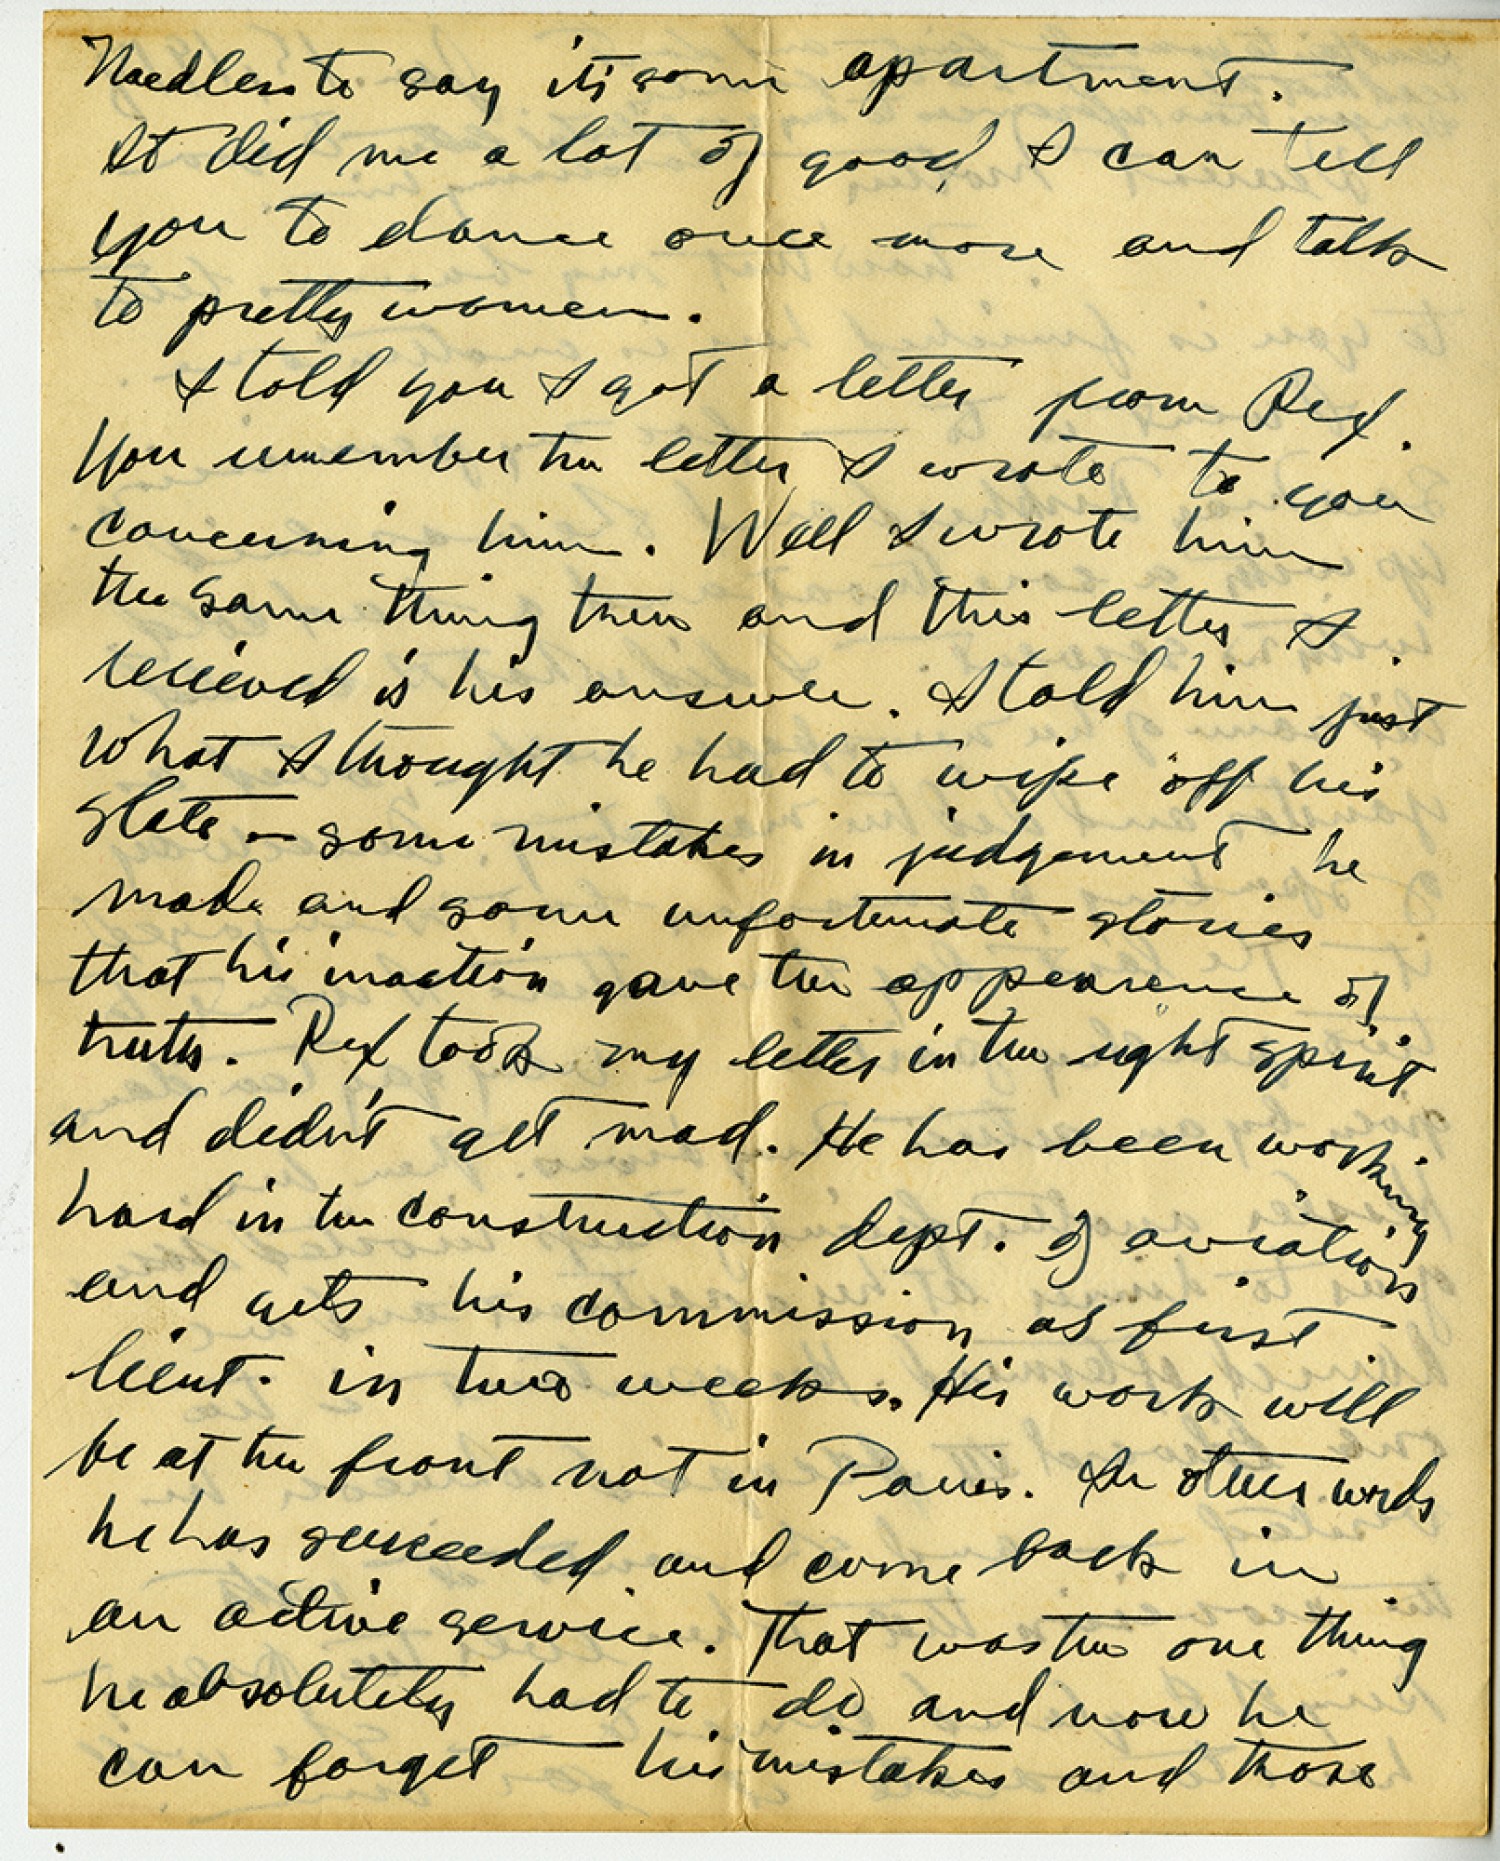 Needless to say it's some apartment.
It did me a lot of good, I can tell
you to dance once more and talk
to pretty women.
I told you I got a letter from Rex.
You remember the letter I wrote to you
concerning him. Well I wrote him
the same thing then and this letter I
recieved is his answer. I told him just
what I thought he had to wipe off his
slate - some mistakes in judgement he
made and some unfortunate stories
that his inaction gave the appearence of
truth. Rex took my letter in the right spirit
and didn't get mad. He has been working
hard in the construction dept. of aviation
and gets his commission as first
lieut. in two weeks. His work will
be at the front not in Paris. In other words
he has succeeded and come back in
an active service. That was the one thing
he absolutely had to do and now he
can forget his mistakes and those